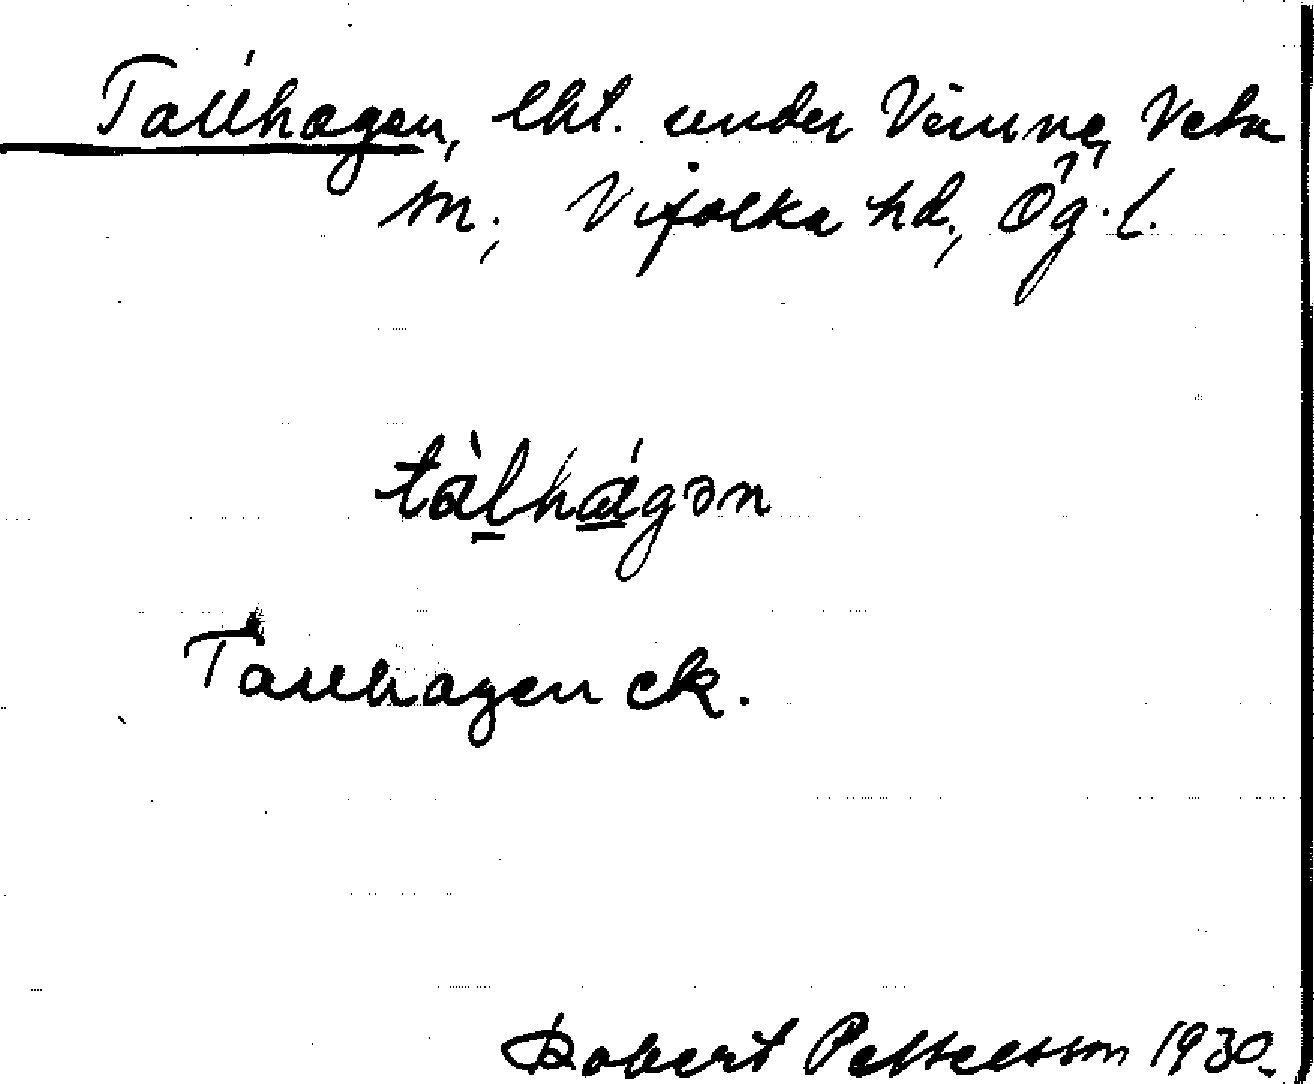 Tallhagen, lht. under Vinne, Veta
sn., Vifolka hd., Ög. l.
tàlhágən
Tallhagen ek.
Robert Pettersson 1930